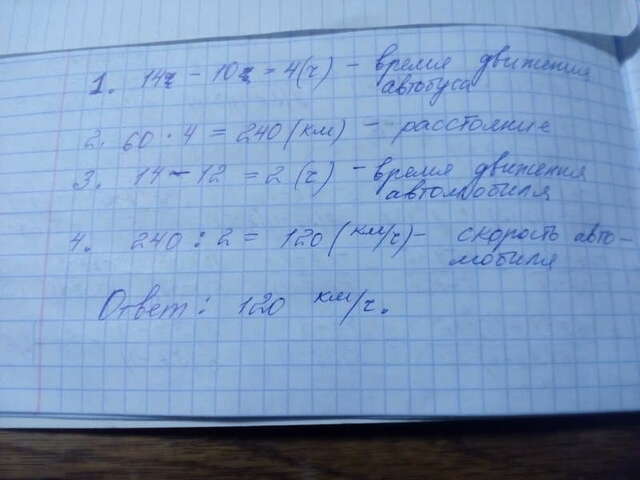 1. 14ч - 10ч = 4(ч) - время движения
автобуса
2. 60 · 4 = 240 (км) - расстояние
3. 14 - 12 = 2 (ч) - время движения
автомобиля
4. 240 : 2 = 120 (км/ч) - скорость авто-
мобиля
Ответ: 120 км/ч.